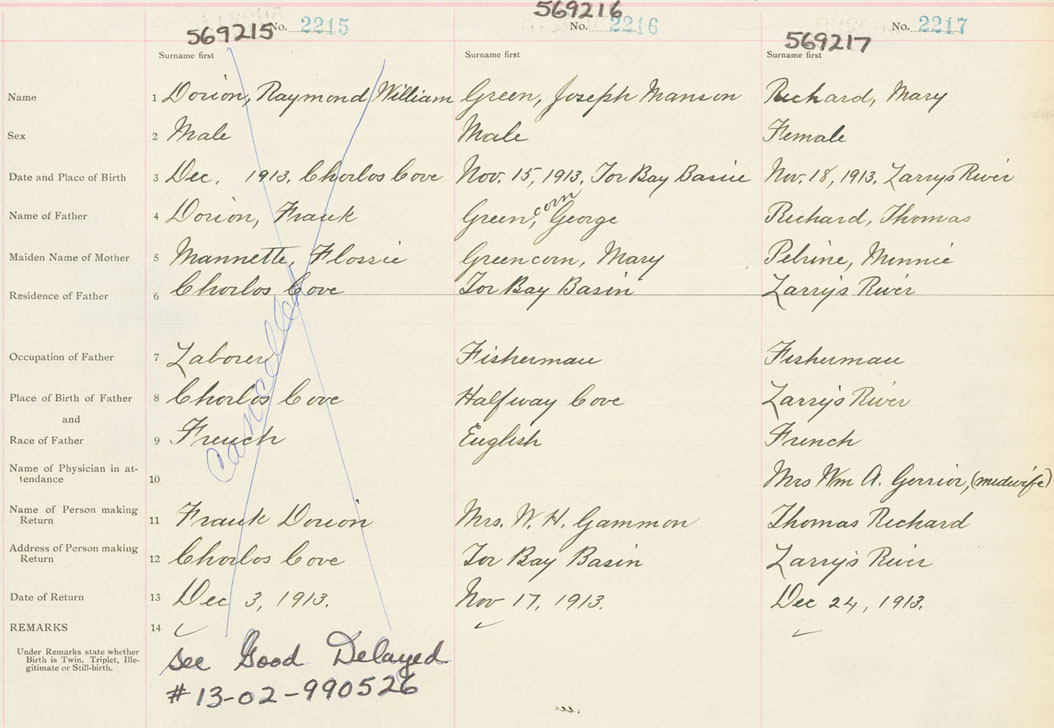 569215 No. 2215 569216 No. 2216 569217 No. 2217
Surname first Surname first Surname first
Name 1 Dorion, Raymond William Green, Joseph Manson Richard, Mary
Sex 2 Male Male Female
Date and Place of Birth 3 Dec. 1913. Chorlos Cove Nov. 15, 1913, Tor Bay Basin Nov. 18, 1913. Larry's River
Name of Father 4 Dorion, Frank Green, corn George Richard, Thomas
Maiden Name of Mother 5 Mannette, Flossie Greencorn, Mary Pelrine, Minnie
Residence of Father 6 Chorlos Cove Tor Bay Basin Larry's River
Occupation of Father 7 Laborer Fisherman Fisherman
Place of Birth of Father 8 Chorlos Cove Halfway Cove Larry's River
and
Race of Father 9 French English French
Name of Physician in at-
tendance 10 Mrs Wm A. Gerrior, (midwife)
Name of Person making
Return 11 Frank Dorion Mrs. W. H. Gammon Thomas Richard
Address of Person making
Return 12 Chorlos Cove Tor Bay Basin Larry's River
Date of Return 13 Dec 3, 1913. Nov 17, 1913. Dec 24, 1913.
REMARKS 14
Under Remarks state whether
Birth is Twin, Triplet, Ille-
gitimate or Still-birth.
Cancelled
See Good Delayed
#13-02-990526